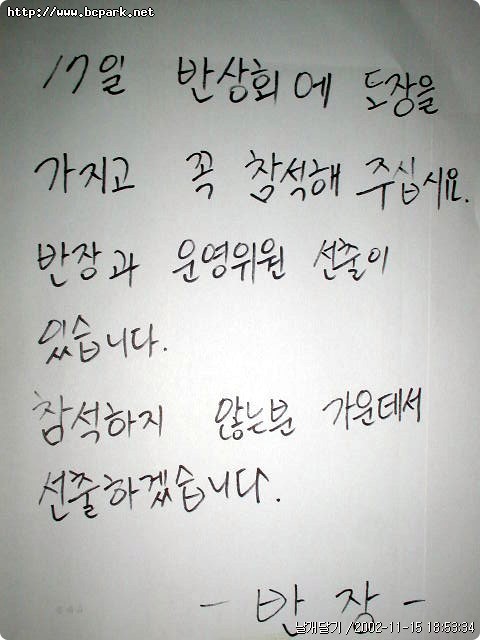 http://www.bcpark.net
17일 반상회에 도장을
가지고 꼭 참석해 주십시요.
반장과 운영위원 선출이
있습니다.
참석하지 않는분 가운데서
선출하겠습니다.
- 반 장 -
날개달기 /2002-11-15 18:53:34